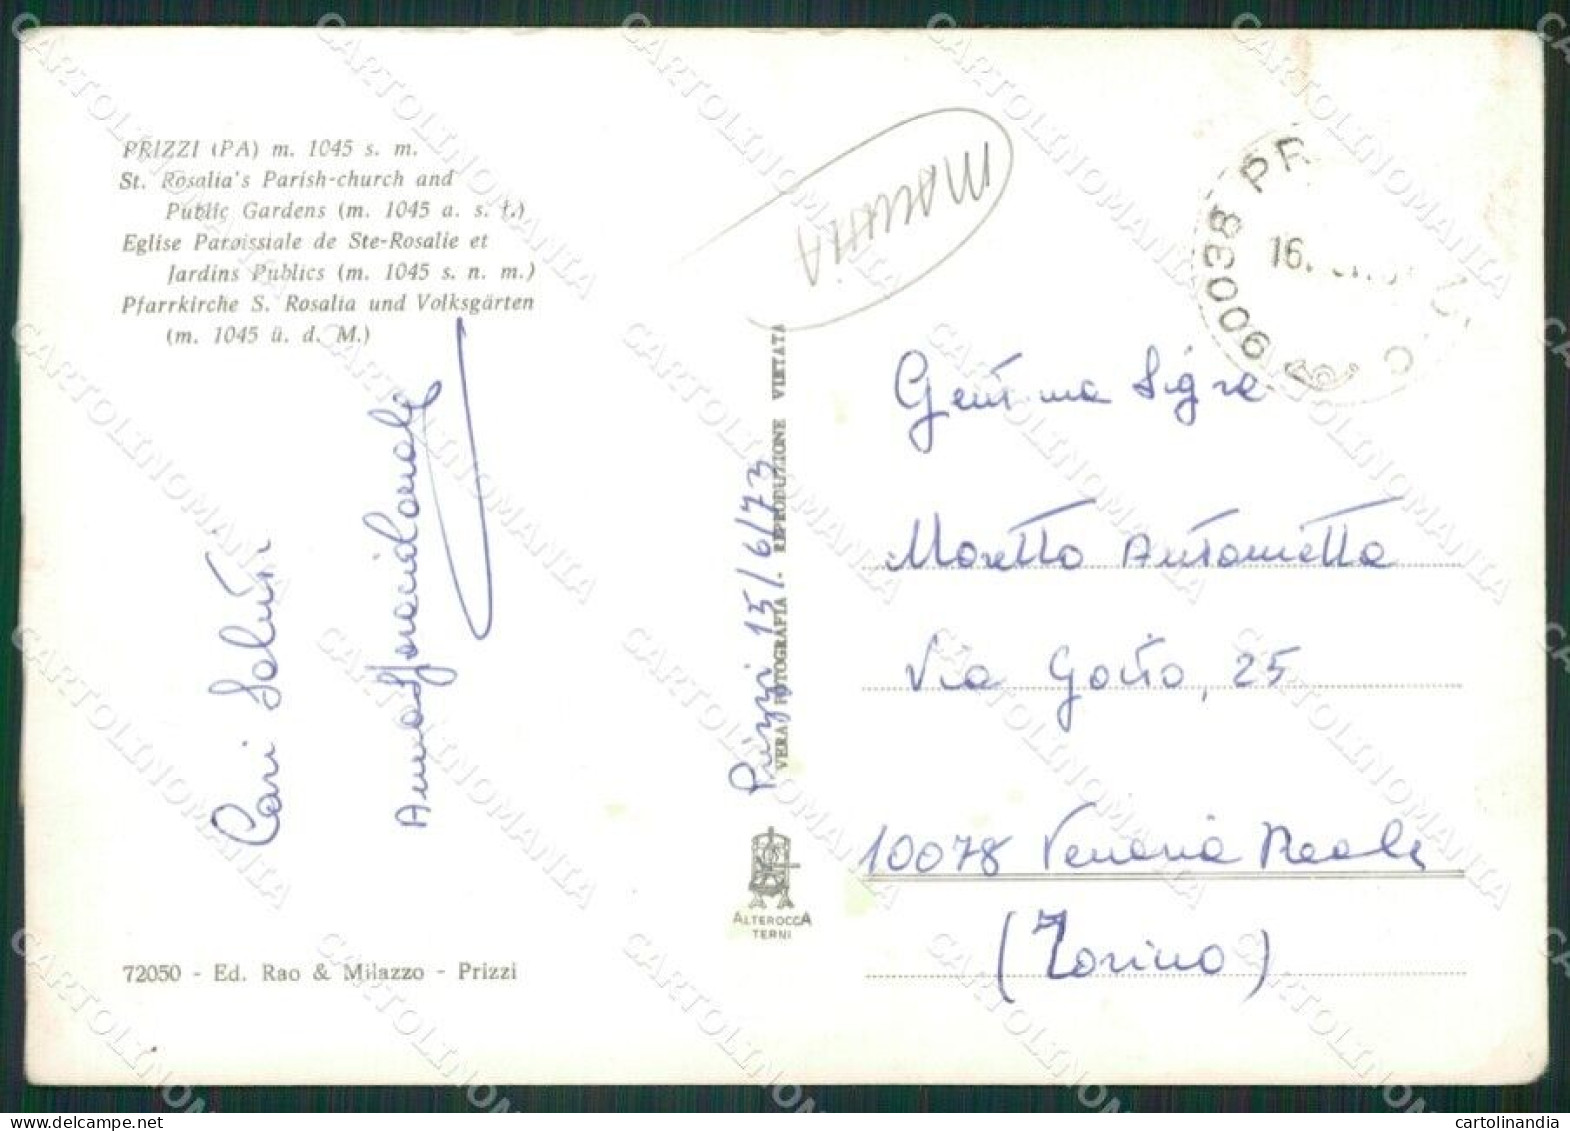 PRIZZI (PA) m. 1045 s. m.
St. Rosalia's Parish-church and
Public Gardens (m. 1045 a. s. l.)
Eglise Paroissiale de Ste-Rosalie et
Jardins Publics (m. 1045 s. n. m.)
Pfarrkirche S. Rosalia und Volksgärten
(m. 1045 ü. d. M.)
Cari Saluti
Prizzi 15/6/73
VERA FOTOGRAFIA - RIPRODUZIONE VIETATA
ALTEROCCA
TERNI
72050 - Ed. Rao & Milazzo - Prizzi
90038 PR
16.
Gent.ma Sig.ra
Moretto Antonietta
Via Goito, 25
10078 Venaria Reale
(Torino)
CARTOLINOMANIA
delcampe.net
cartolinandia